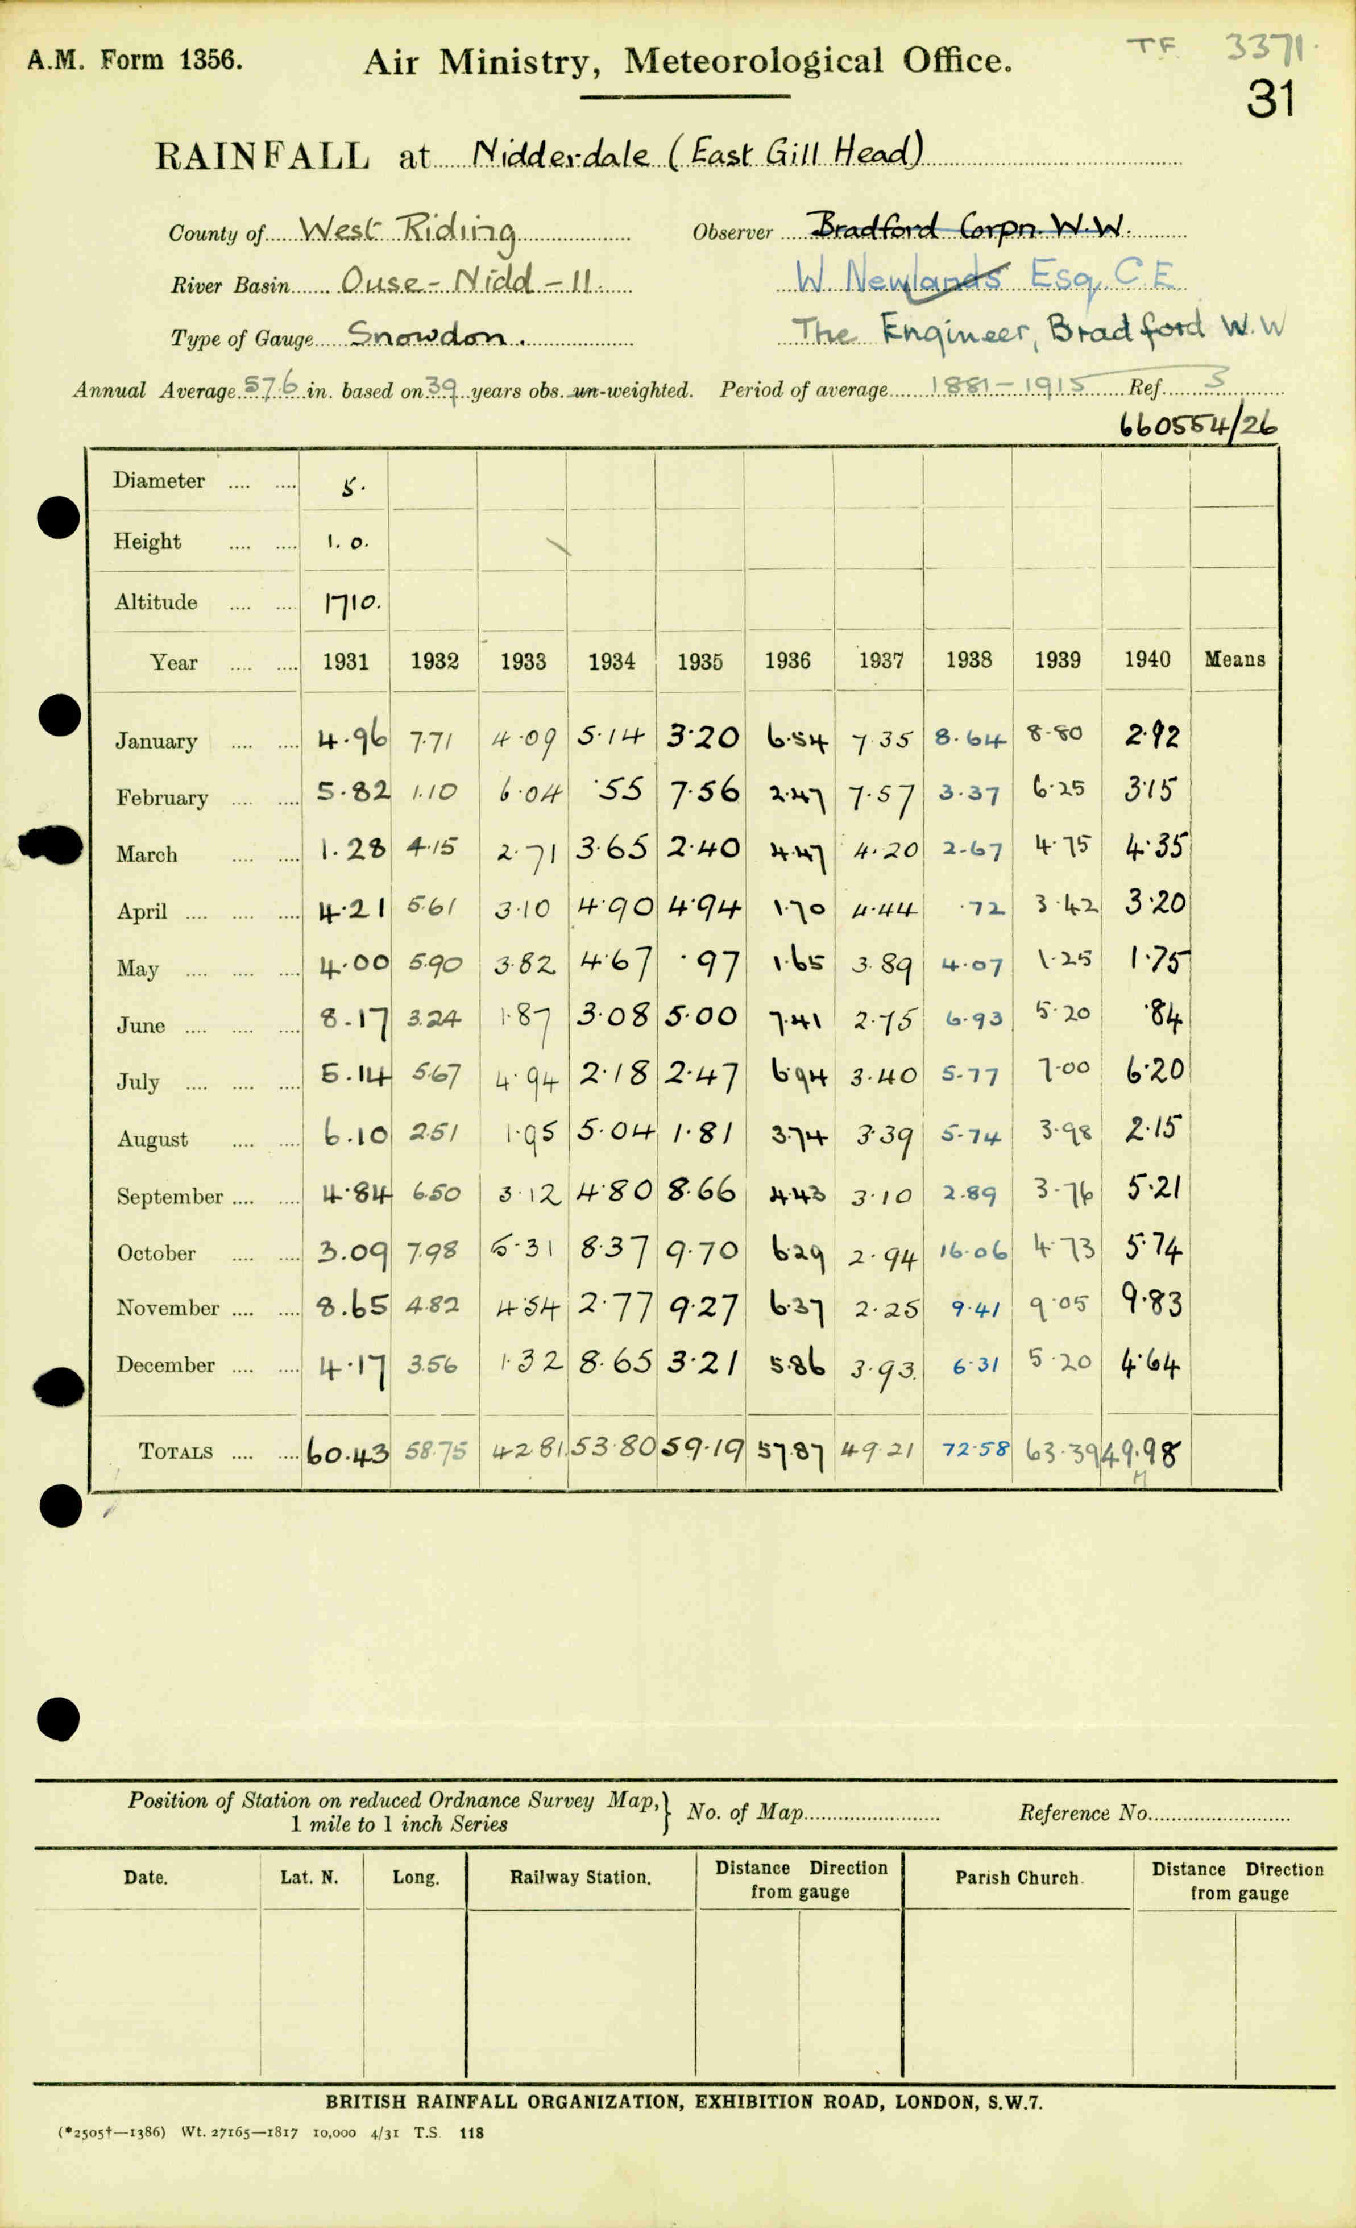 A.M. Form 1356.
Air Ministry, Meteorological Office.
TF 3371.
31
RAINFALL at Nidderdale (East Gill Head)
County of West Riding Observer Bradford Corpn. W.W.
River Basin Ouse - Nidd - 11. W. Newlands Esq. C.E.
Type of Gauge Snowdon. The Engineer, Bradford W.W
Annual Average 57.6 in. based on 39 years obs. un-weighted. Period of average 1881-1915 Ref. 3
660554/26
Diameter .... .... 5.
Height .... .... 1.0.
Altitude .... .... 1710.
Year .... .... 1931 1932 1933 1934 1935 1936 1937 1938 1939 1940 Means
January .... .... 4.96 7.71 4.09 5.14 3.20 6.54 7.35 8.64 8.80 2.92
February .... .... 5.82 1.10 6.04 .55 7.56 2.47 7.57 3.37 6.25 3.15
March .... .... 1.28 4.15 2.71 3.65 2.40 4.47 4.20 2.67 4.75 4.35
April .... .... .... 4.21 5.61 3.10 4.90 4.94 1.70 4.44 .72 3.42 3.20
May .... .... .... 4.00 5.90 3.82 4.67 .97 1.65 3.89 4.07 1.25 1.75
June .... .... .... 8.17 3.24 1.87 3.08 5.00 7.41 2.75 6.93 5.20 .84
July .... .... .... 5.14 5.67 4.94 2.18 2.47 6.94 3.40 5.77 7.00 6.20
August .... .... 6.10 2.51 1.95 5.04 1.81 3.74 3.39 5.74 3.98 2.15
September .... .... 4.84 6.50 3.12 4.80 8.66 4.43 3.10 2.89 3.76 5.21
October .... .... 3.09 7.98 5.31 8.37 9.70 6.29 2.94 16.06 4.73 5.74
November .... .... 8.65 4.82 4.54 2.77 9.27 6.37 2.25 9.41 9.05 9.83
December .... .... 4.17 3.56 1.32 8.65 3.21 5.86 3.93. 6.31 5.20 4.64
TOTALS .... .... 60.43 58.75 42.81. 53.80 59.19 57.87 49.21 72.58 63.39 49.98
M
Position of Station on reduced Ordnance Survey Map,} No. of Map Reference No.
1 mile to 1 inch Series
Date. Lat. N. Long. Railway Station. Distance Direction Parish Church. Distance Direction
from gauge from gauge
BRITISH RAINFALL ORGANIZATION, EXHIBITION ROAD, LONDON, S.W.7.
(*2505†—1386) Wt. 27165—1817 10,000 4/31 T.S. 118